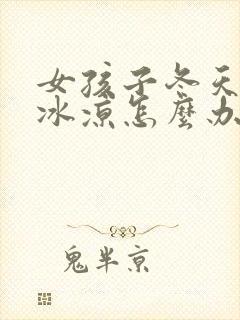 女孩子冬天
冰凉怎麼办
鬼半京